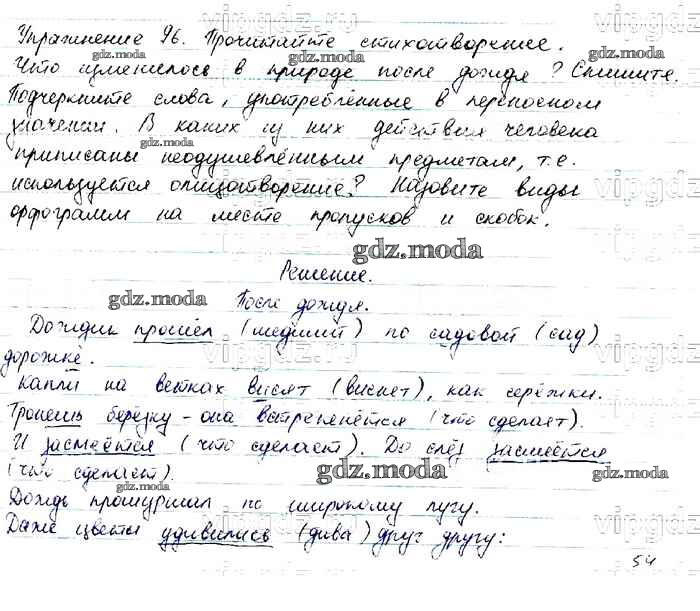 Упражнение 96. Прочитайте стихотворение.
Что изменилось в природе после дождя? Спишите.
Подчеркните слова, употреблённые в переносном
значении. В каких из них действия человека
приписаны неодушевлённым предметам, т.е.
используется олицетворение? Назовите виды
орфограмм на месте пропусков и скобок.
gdz.moda
Решение.
gdz.moda
После дождя.
Дождик прошёл (шедший) по садовой (сад)
дорожке.
Капли на ветках висят (виснет), как серёжки.
Тронешь берёзку - она встрепенётся (что сделает).
И засмеётся (что сделает). До слёз засмеётся
(что сделает).
gdz.moda
Дождь прошуршал по широкому лугу.
Даже цветы удивились (дива) друг другу:
54